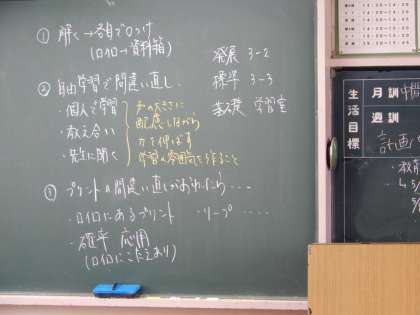 ① 解く→各自で○つけ
(ロイロ→資料箱)
② 自由学習で間違い直し
・個人で学習
・教え合い
・先生に聞く
声の大きさに
配慮しながら
力を伸ばす
学習の雰囲気を作ること
③ プリントの間違い直しがおわったら・・・
・ロイロにあるプリント
・リープ ・・・・
・確率 応用
(ロイロにこたえあり)
発展 3-2
標準 3-3
基礎 学習室
生活目標
月訓
週訓
計画